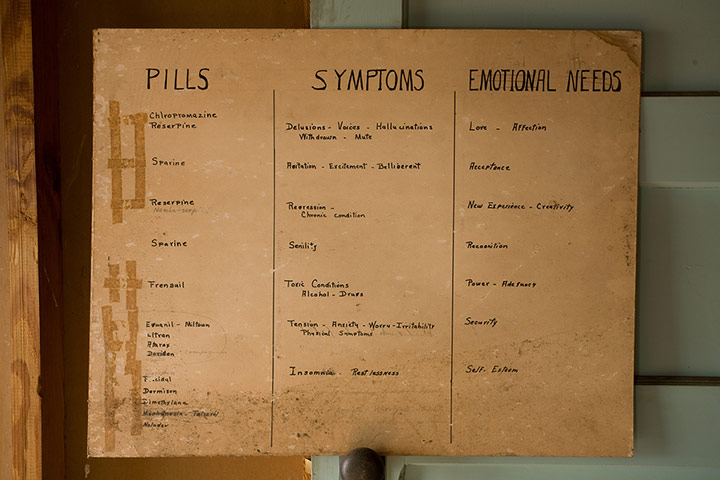 PILLS SYMPTOMS EMOTIONAL NEEDS
Chlropromazine
Reserpine
Delusions - Voices - Hallucinations
Withdrawn - Mute
Love - Affection
Sparine
Agitation - Excitement - Belliberent
Acceptance
Reserpine
Regression -
Chronic condition
New Experience - Creativity
Sparine
Senility
Recognition
Frenquil
Toxic Conditions
Alcohol - Drugs
Power - Adequacy
Equanil - Miltown
Ultran
Atarax
Doriden
Tension - Anxiety - Worry - Irritability
Physical Symptoms
Security
Dormison
Dimethylane
Noludar
Insomnia - Restlessness
Self-Esteem